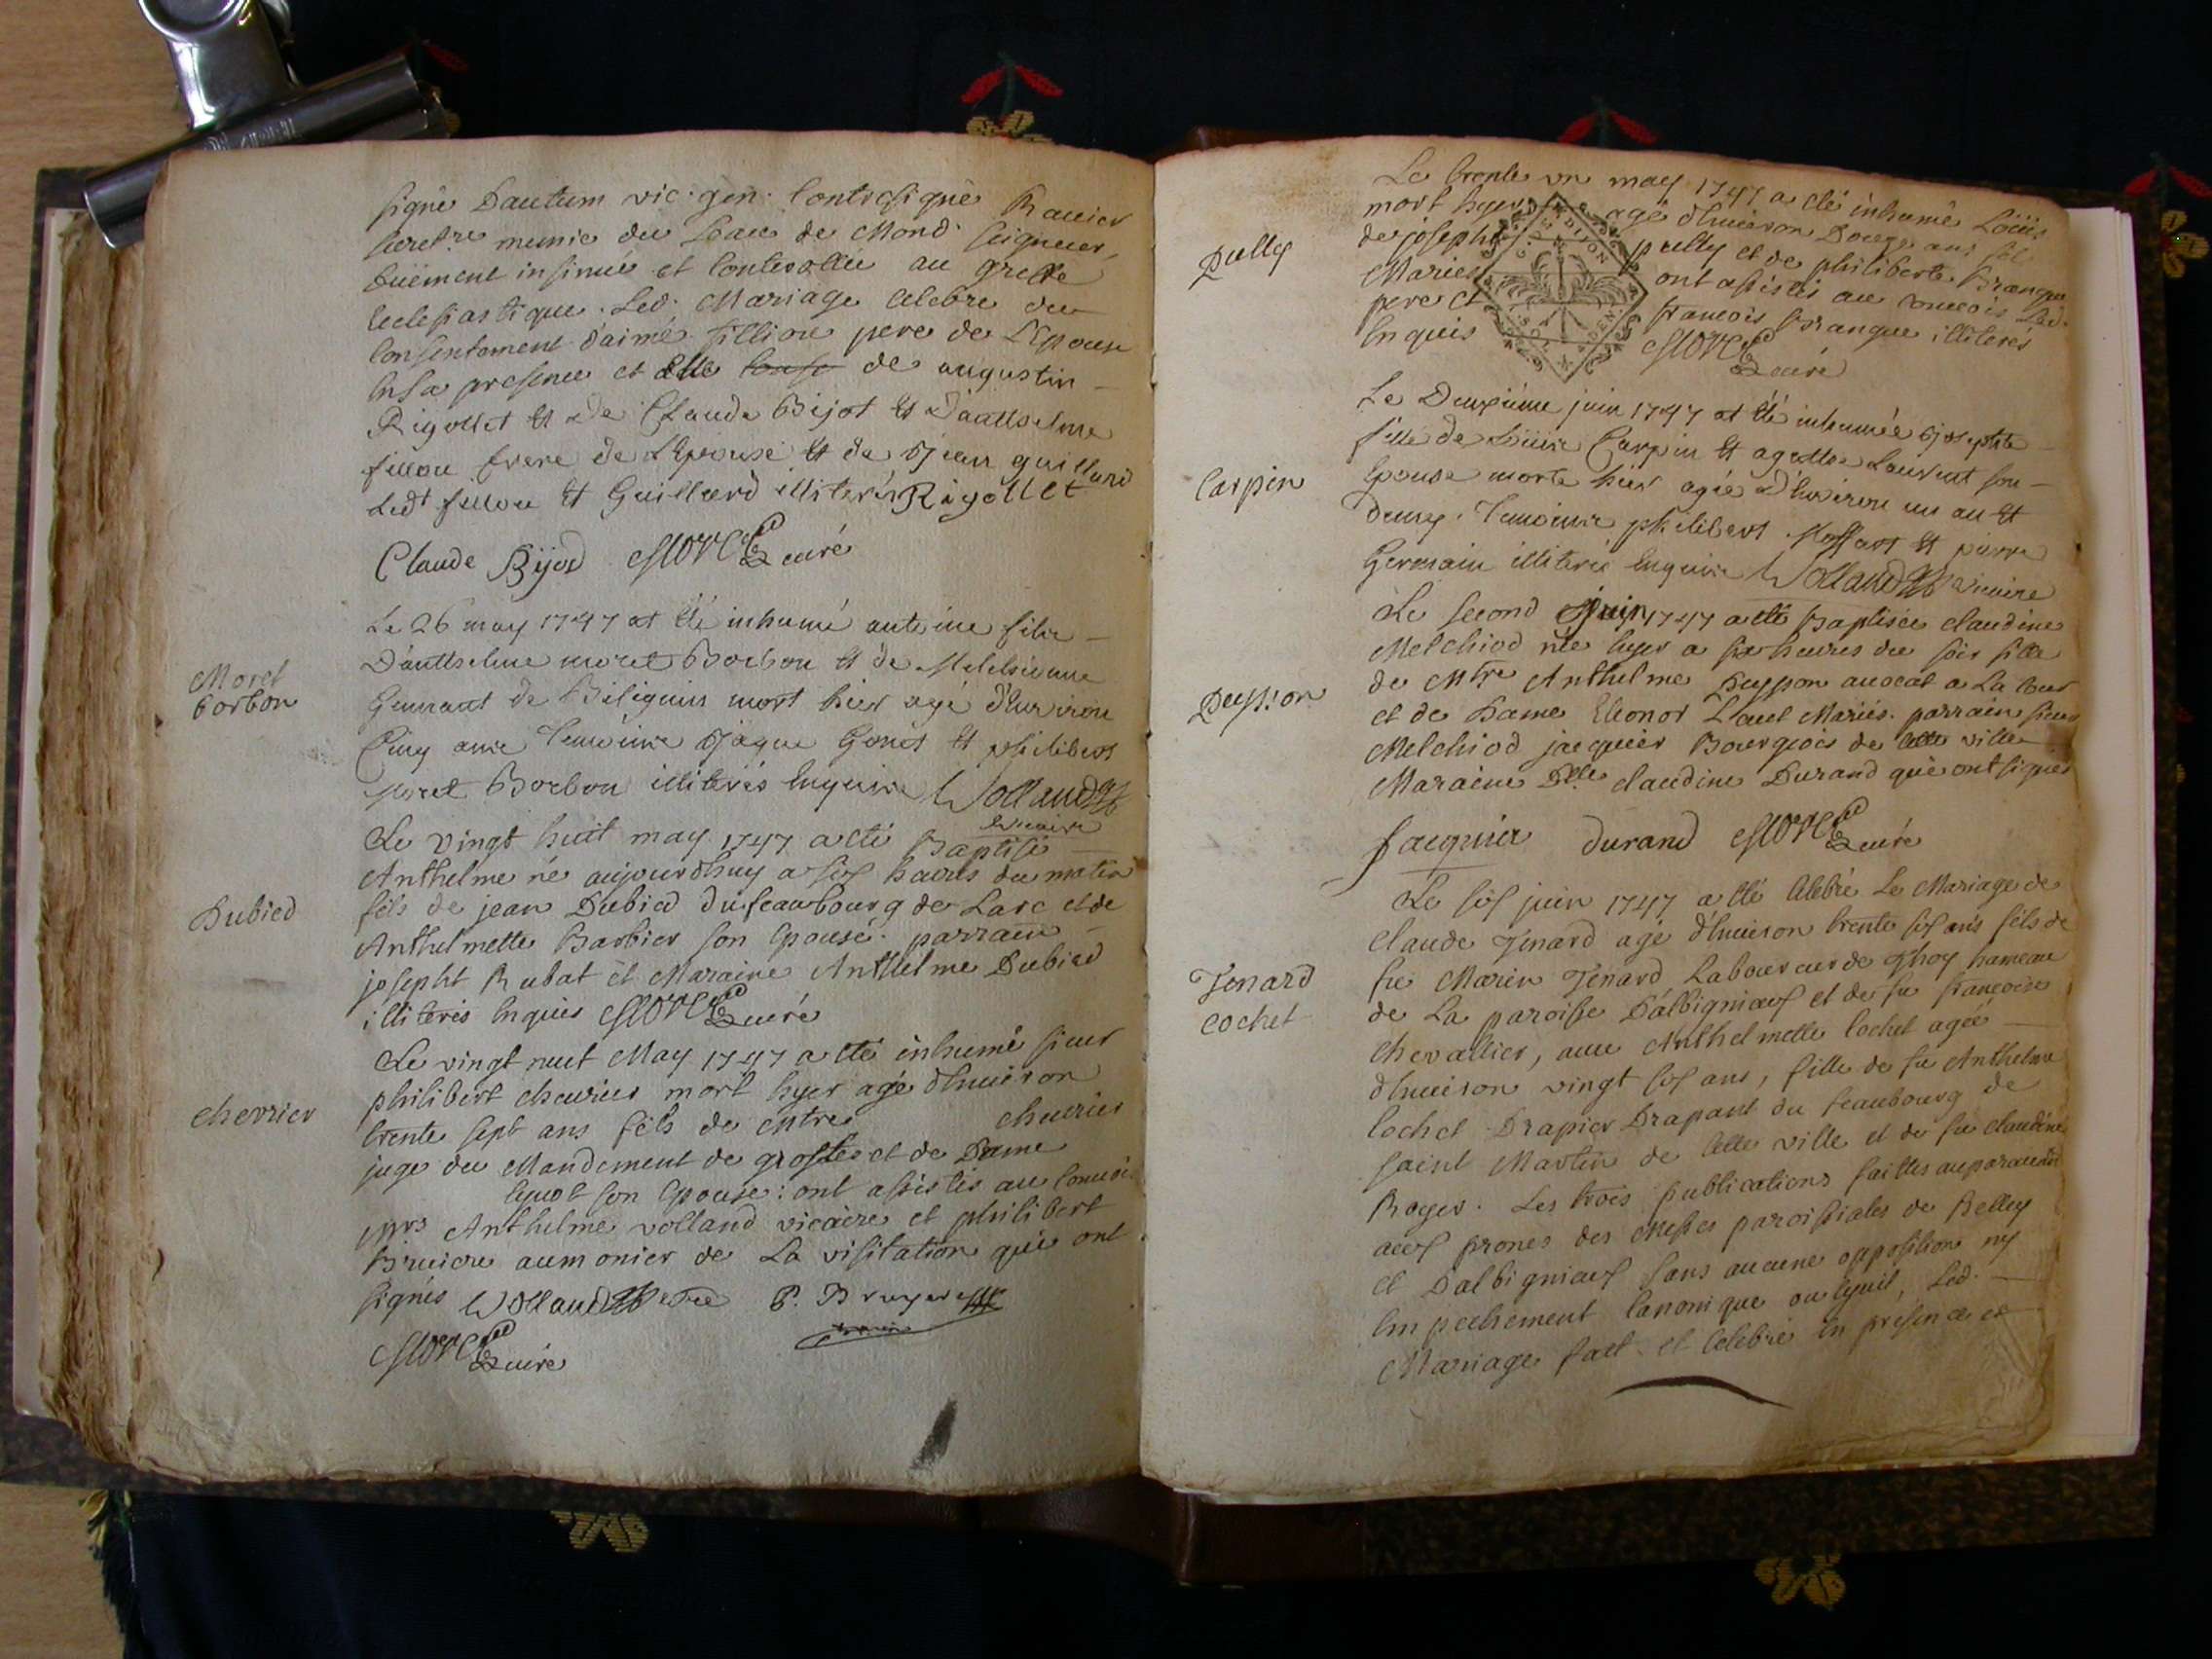 signé Dautum vic. gen. Contresigné Ravier
secret.re munie du Sceau de Mond. seigneur,
duëment insinuée et Controllée au greffe
Ecclesiastique. Led. Mariage celebré du
Consentement d'aimé fillion pere de L'Epouse
En sa presence et celle de augustin
Rigollet et de Claude Bijot et d'anthelme
fillou frere de L'Epouse et de Jean guillard
Ledt fillou et Guillard illiterés Rigollet
Claude Bijod curé
Moret
borbon
Le 26 may 1747 at été inhumé antoine fils
D'anthelme moret Borbon et de
de Biliguin mort hier agé d'Environ
Cinq ans Temoins Jaque et philibert
Moret Borbon illiterés Enquis Wolland
vicaire
Dubied
Le vingt huit may 1747 a eté Baptisé
Anthelme né aujourdhuy a six heures du matin
fils de jean Dubied du feaubourg de Larc et de
Anthelmette Barbier son Epouse. parrain
josepht Rubat et Maraine Anthelme Dubied
illiterés Enquis curé
chevrier
Le vingt neuf May 1747 a eté inhumé sieur
philibert chevrier mort hyer agé d'Environ
trente sept ans fils de Mtre chevrier
juge du Mandement de et de Dame
son Epouse: ont assistés au Convoi
Mrs Anthelme volland vicaire et philibert
Bruiere aumonier de La visitation qui ont
signés Wolland P. Bruyere
curé
pully
Le trente un may 1747 a eté inhumé Loüis
mort hyer agé d'Environ Douze ans fils
de joseph pully et de philiberte Branque
Mariés ont assistés au Convois Led.
pere et francois Branque illiterés
Enquis
curé
Carpin
Le Deuxiéme juin 1747 at été inhumée Josephte
fille de Carpin et agathe Laurent son
Epouse morte hier agée d'Environ un an et
demy. Temoins philibert et pierre
Germain illiterés Enquis Wolland vicaire
Peysson
Le second juin 1747 a eté Baptisée claudine
Melchiod née hyer a six heures du soir fille
de Mtre Anthelme Peysson avocat a La Cour
et de Dame Eleonor Mariés. parrain sieur
Melchiod jacquier Bourgeois de cette ville
Maraine Dlle claudine Durand qui ont signés
Jacquier durand curé
Jenard
cochet
Le six juin 1747 a eté Celebré Le Mariage de
Claude Jenard agé d'Environ trente six ans fils de
fu Marin Jenard Laboureur de Thoy hameau
de La paroisse D'albignieux et de fu francoise
chevallier, avec Anthelmette Cochet agée
d'Environ vingt six ans, fille de fu Anthelme
Cochet Drapier Drapant du feaubourg de
saint Martin de cette ville et de fu claudine
Roger. Les trois publications faittes auparavant
aux prones des Messes paroissiales de Belley
et D'albignieux sans aucune opposition ny
Empechement Canonique ou Civil, Led.
Mariage fait et Celebré En presence de